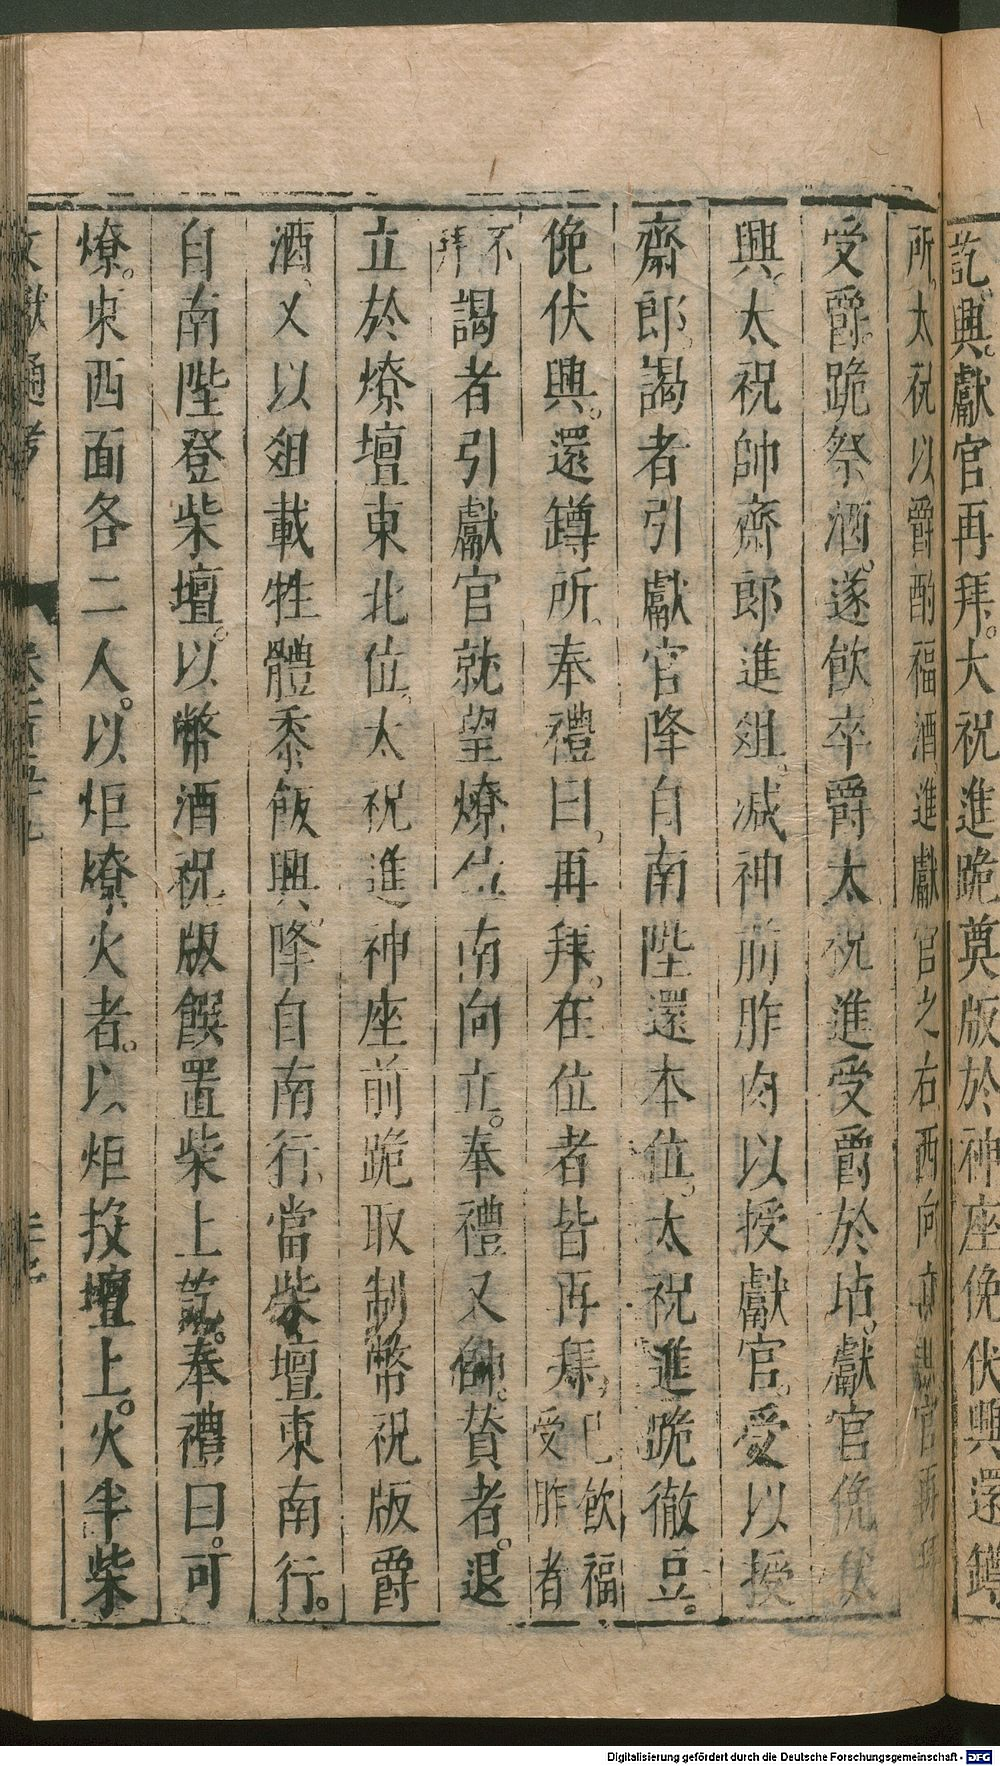 訖。興。獻官再拜。大祝進跪奠版於神座俛伏興還罇
所。太祝以爵酌福酒進獻官之右西向立。獻官再拜
受爵。跪祭酒。遂飲卒爵太祝進受爵於坫。獻官俛伏
興。太祝帥齋郎進俎。減神前胙肉以授獻官。受以授
齋郎。謁者引獻官降自南陛還本位。太祝進跪徹豆。
俛伏興。還罇所。奉禮曰。再拜。在位者皆再拜。已飲福
受胙者
不拜謁者引獻官就望燎位南向立。奉禮又帥。贊者。退
立於燎壇東北位。太祝進神座前跪取制幣祝版爵
酒。又以俎載牲體黍飯興。降自南行。當柴壇東南行。
自南陛登柴壇。以幣酒祝版饌置柴上訖。奉禮曰。可
燎。東西面各二人。以炬燎火者。以炬投壇上。火半柴
文獻通考